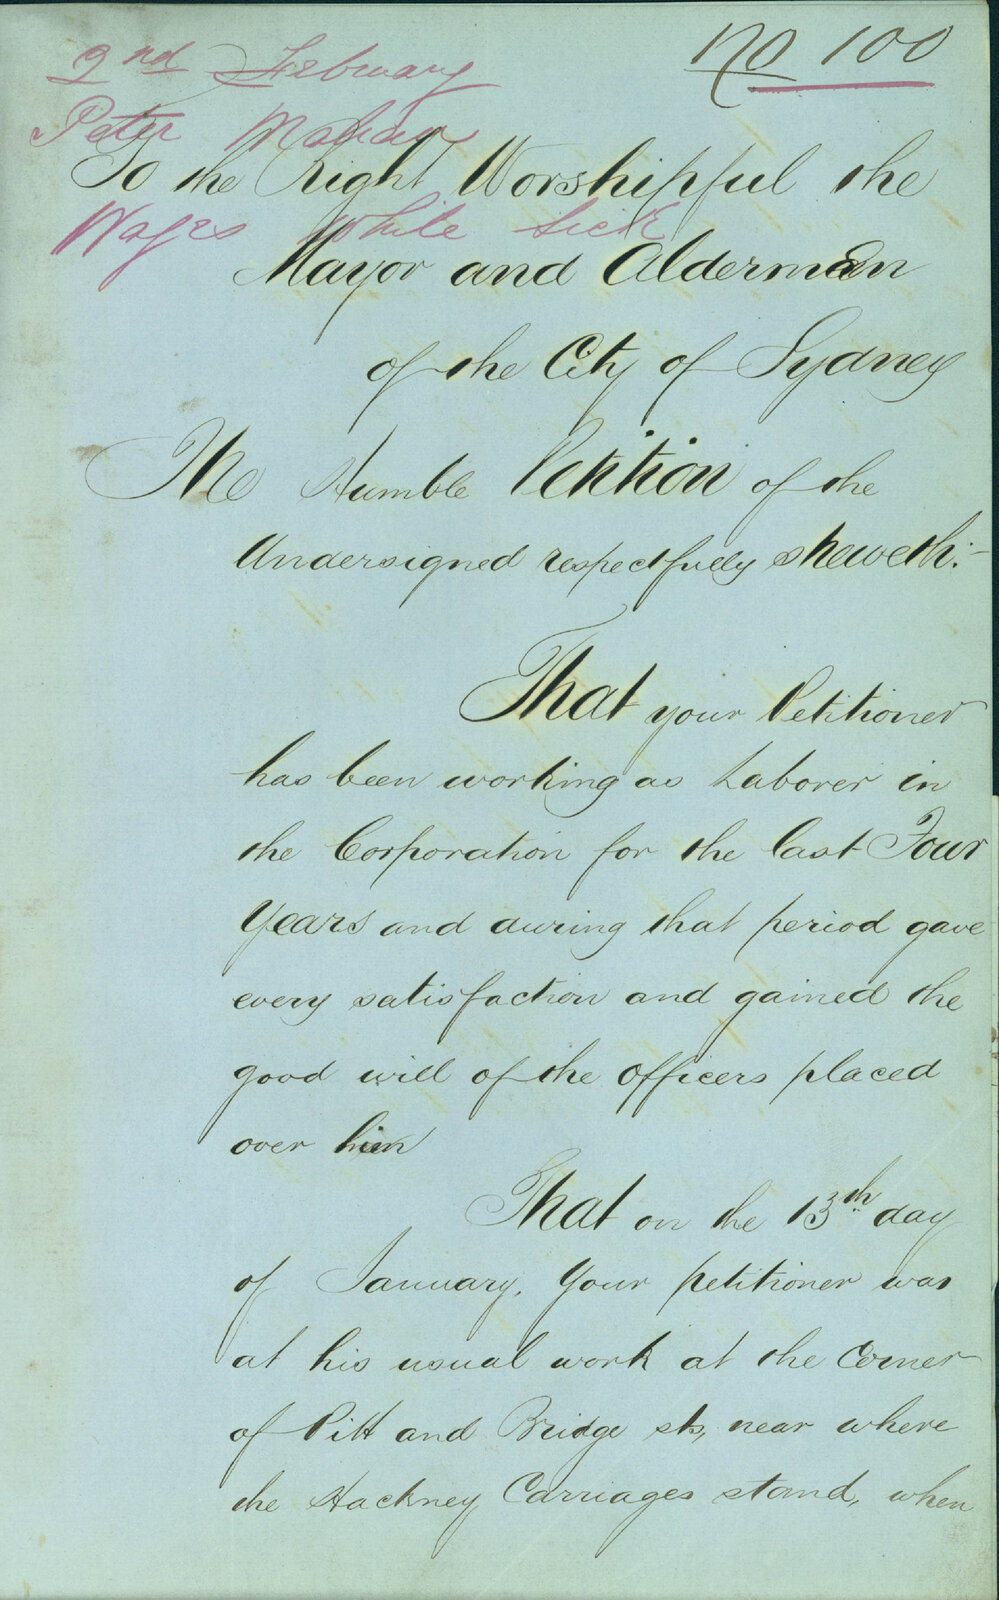 No 100
2nd February
Peter Mahar
Wages while sick
To the Right Worshipful the
Mayor and Aldermen
of the City of Sydney
The Humble Petition of the
Undersigned respectfully sheweth:-
That your Petitioner
has been working as Laborer in
the Corporation for the last Four
Years and during that period gave
every satisfaction and gained the
good will of the officers placed
over him
That on the 13th day
of January, Your petitioner was
at his usual work at the Corner
of Pitt and Bridge sts, near where
the Hackney Carriages stand, when